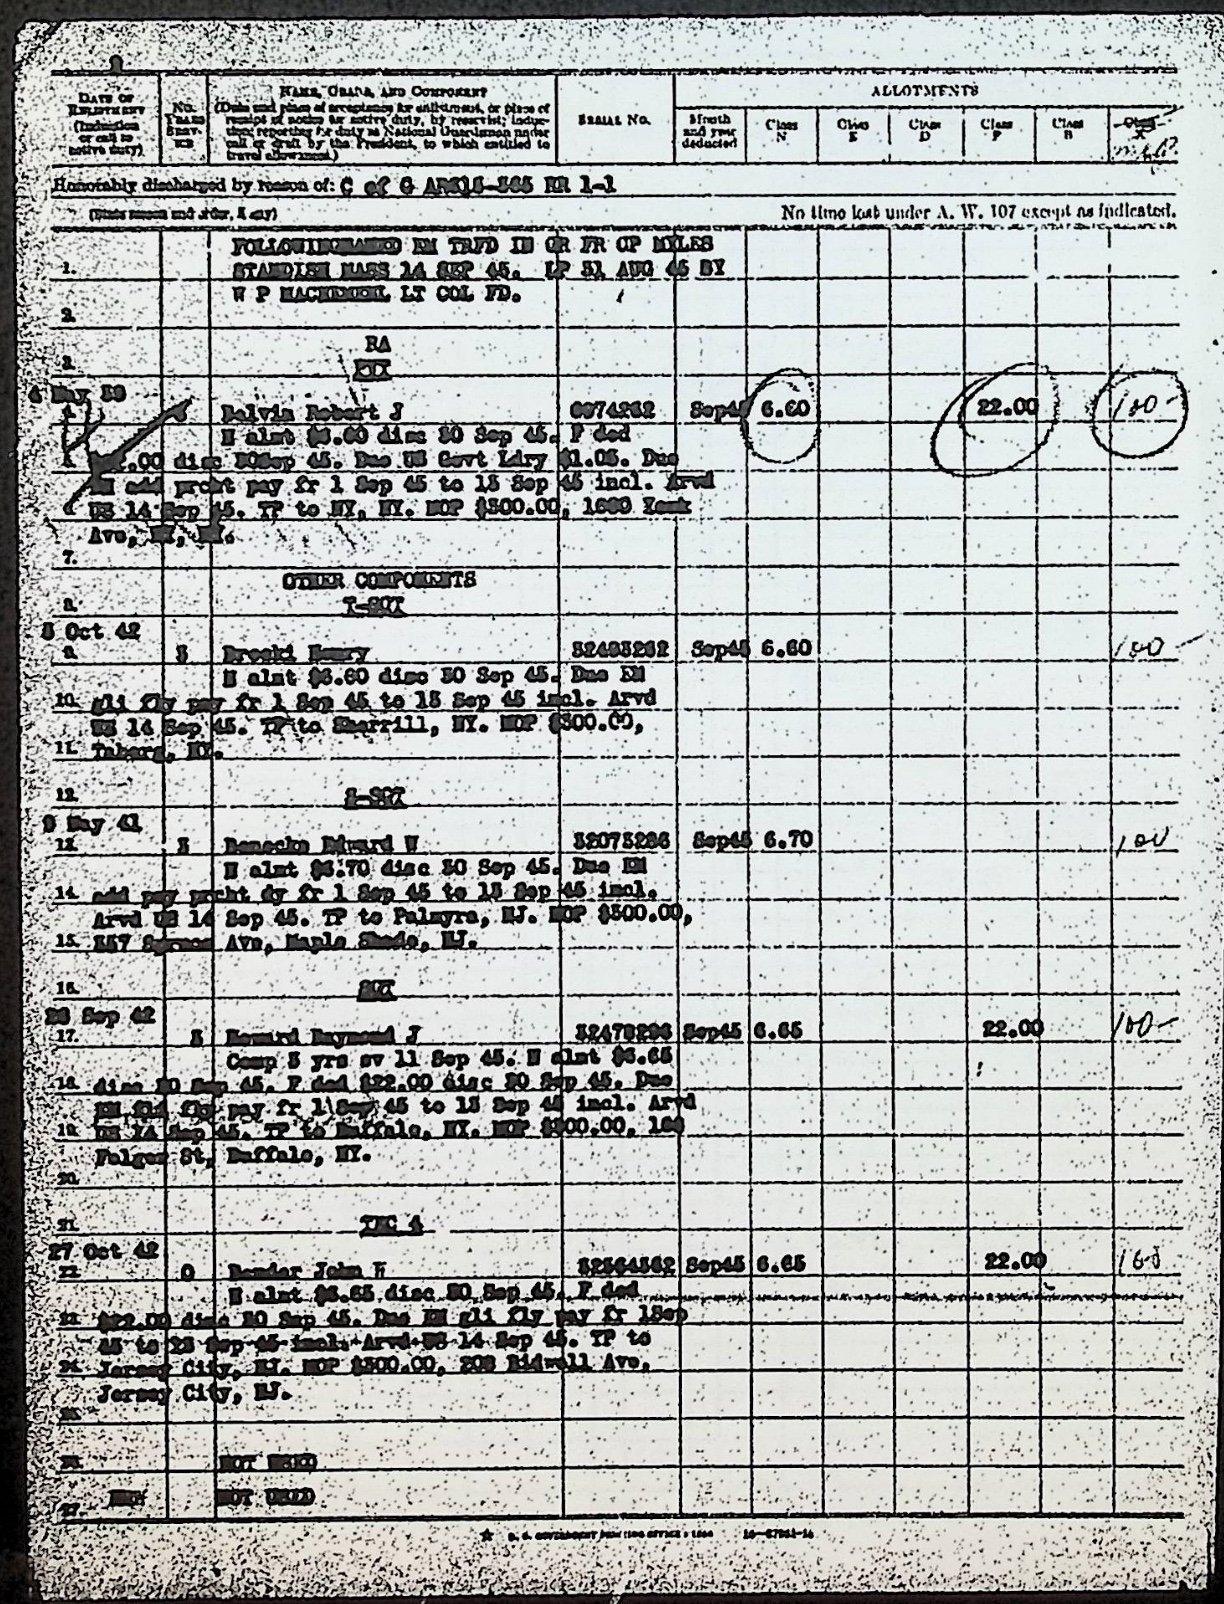 DATE OF ENLISTMENT (Induction or call to active duty)
No. YEARS SERVICE
NAME, GRADE, AND COMPONENT
(Date and place of acceptance for enlistment, or place of receipt of notice for active duty, by reservist; induction; reporting for duty as National Guardsman under call or draft by the President, to which entitled to travel allowance.)
SERIAL NO.
ALLOTMENTS
Month and year deducted
Class N
Class E
Class D
Class F
Class B
Class
Honorably discharged by reason of: C of G AR615-365 RR 1-1
(State reason and order, if any)
No time lost under A. W. 107 except as indicated.
EM TRFD IN GR FR CP MYLES
1. STANDISH MASS 14 SEP 45. LP 31 AUG 45 BY
W P LT COL FD.
2.
RA
3.
4 May 38
4. Robert J Sep45 6.60 22.00 100-
N almt $6.60 disc 30 Sep 45. F ded
5. disc 30Sep 45. Due US Govt Ldry $1.05. Due
add prcht pay fr 1 Sep 45 to 13 Sep 45 incl. Arvd
6. US 14 Sep 45. TP to NY, NY. MOP $300.00,
Ave, NY, NY.
7.
OTHER COMPONENTS
8. T-SGT
3 Oct 42
9. 3 Henry 32483262 Sep45 6.60 100
N almt $6.60 disc 30 Sep 45. Due EM
10. gli fly pay fr 1 Sep 45 to 13 Sep 45 incl. Arvd
US 14 Sep 45. TP to Sherrill, NY. MOP $300.00,
11. Taberg, NY.
12. S-SGT
9 May 41
13. 3 Edward W 32073286 Sep45 6.70 100
N almt $6.70 disc 30 Sep 45. Due EM
14. add pay prcht dy fr 1 Sep 45 to 13 Sep 45 incl.
Arvd US 14 Sep 45. TP to Palmyra, NJ. MOP $300.00,
15. Ave, Maple Shade, NJ.
16. SGT
26 Sep 42
17. 3 Raymond J 32478286 Sep45 6.65 22.00 100-
Comp 3 yrs sv 11 Sep 45. N almt $6.65
18. disc 30 Sep 45. F ded $22.00 disc 30 Sep 45. Due
EM fly pay fr 1 Sep 45 to 13 Sep 45 incl. Arvd
19. US 14 Sep 45. TP to Buffalo, NY. MOP $300.00,
St, Buffalo, NY.
20.
21. TEC 4
27 Oct 42
22. 0 Bender John 32564362 Sep45 6.65 22.00 100
N almt $6.65 disc 30 Sep 45. F ded
23. $22.00 disc 30 Sep 45. Due EM gli fly pay fr 1Sep
45 to 13 Sep 45 incl. Arvd US 14 Sep 45. TP to
24. Jersey City, NJ. MOP $300.00, 208 Bidwell Ave,
Jersey City, NJ.
25.
26. NOT USED
27. NOT USED
U. S. GOVERNMENT PRINTING OFFICE